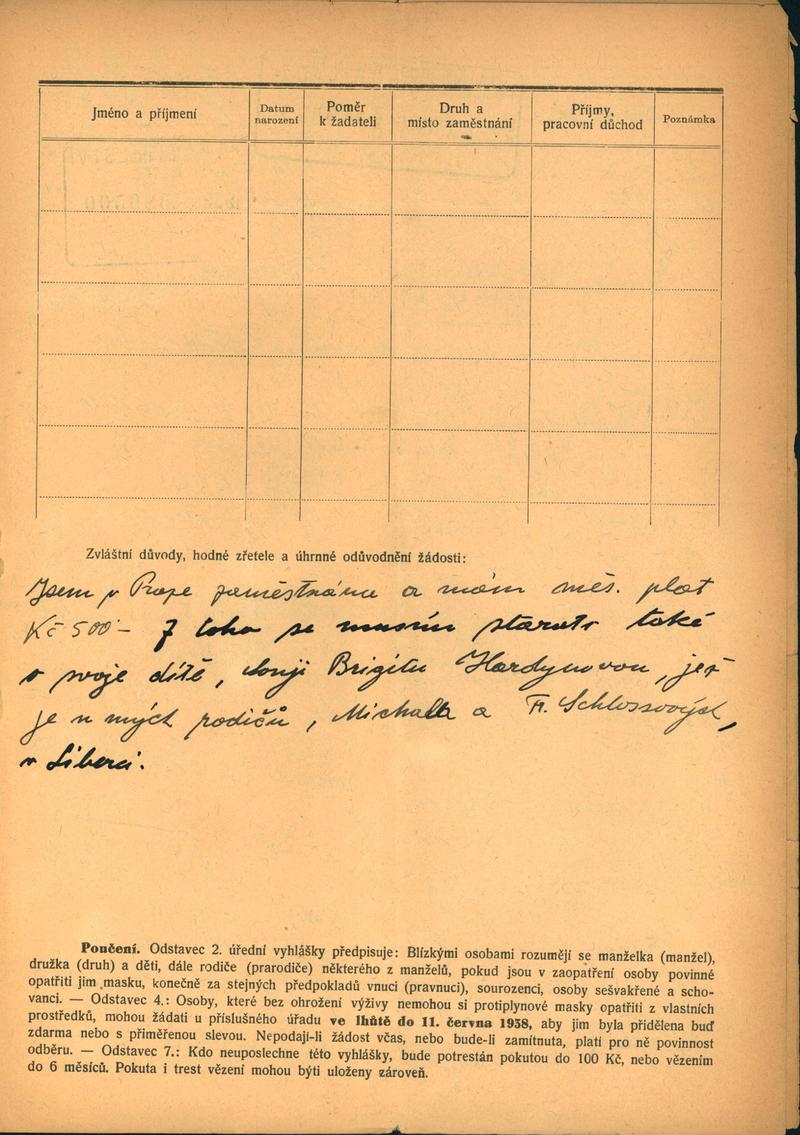 Jméno a příjmení
Datum narození
Poměr k žadateli
Druh a místo zaměstnání
Příjmy, pracovní důchod
Poznámka
Zvláštní důvody, hodné zřetele a úhrnné odůvodnění žádosti:
Jsem v Praze zaměstnána a mám měs. plat
Kč 500- Z toho se musím starati také
o svoje dítě, Brigitu Hardynovou, jež
je u mých rodičů, Michala a Fr. Schlossových,
v Liberci.
Poučení. Odstavec 2. úřední vyhlášky předpisuje: Blízkými osobami rozumějí se manželka (manžel),
družka (druh) a děti, dále rodiče (prarodiče) některého z manželů, pokud jsou v zaopatření osoby povinné
opatřiti jim masku, konečně za stejných předpokladů vnuci (pravnuci), sourozenci, osoby sešvakřené a scho-
vanci. — Odstavec 4.: Osoby, které bez ohrožení výživy nemohou si protiplynové masky opatřiti z vlastních
prostředků, mohou žádati u příslušného úřadu ve lhůtě do 11. června 1938, aby jim byla přidělena buď
zdarma nebo s přiměřenou slevou. Nepodají-li žádost včas, nebo bude-li zamítnuta, platí pro ně povinnost
odběru. — Odstavec 7.: Kdo neuposlechne této vyhlášky, bude potrestán pokutou do 100 Kč, nebo vězením
do 6 měsíců. Pokuta i trest vězení mohou býti uloženy zároveň.